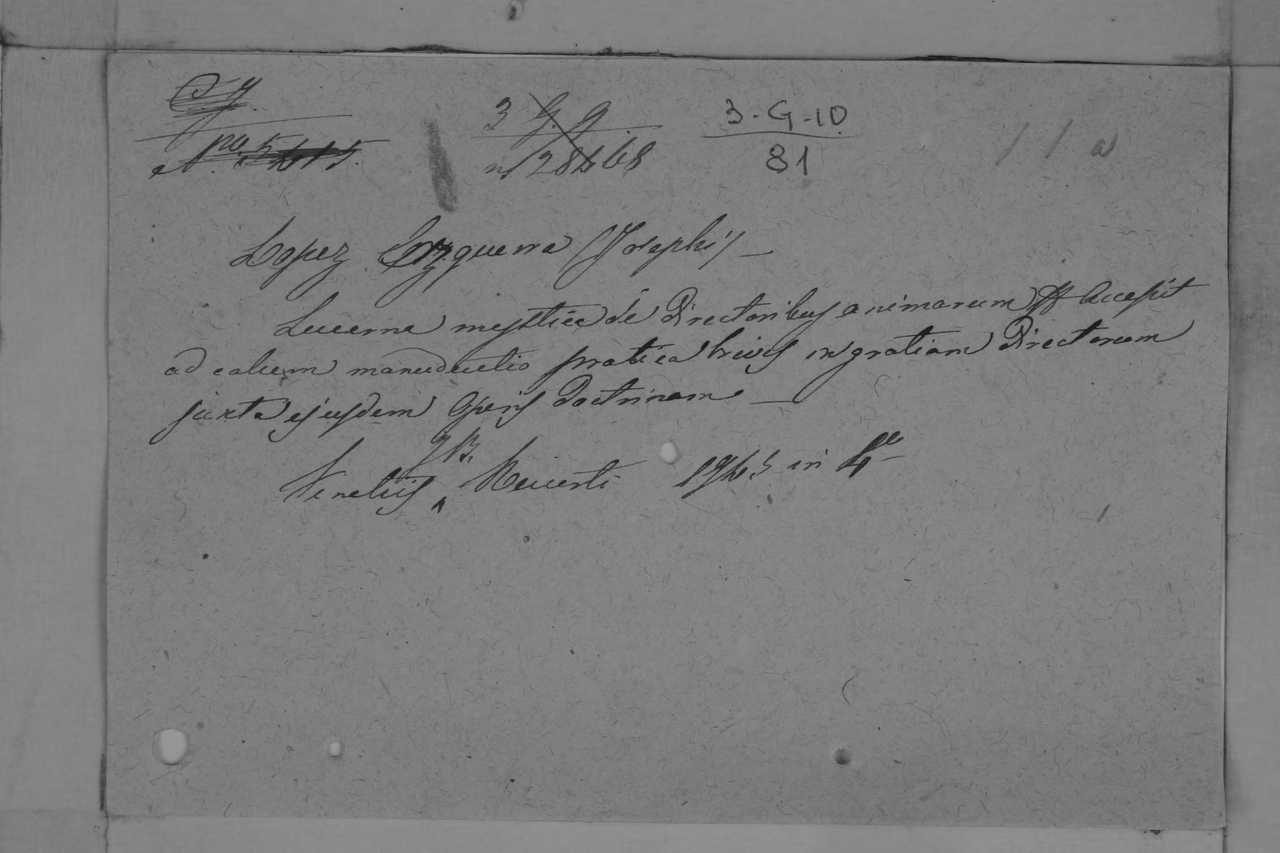 3 G. 9 3-G-10
81
Lopez Ezquerra (Josephi) —
Lucerna mystica de Directoribus animarum Accesit
ad calcem manuductio practica brevis in gratiam Directorum
juxta ejusdem Operis doctrinam —
Venetiis Recurti in 4º